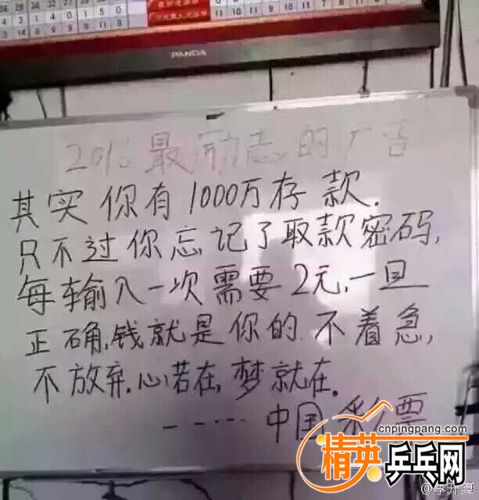 PANDA
201 最励志的广告
其实你有1000万存款.
只不过你忘记了取款密码,
每输入一次需要2元,一旦
正确,钱就是你的.不着急,
不放弃.心若在,梦就在.
-----中国彩票
cnpingpang.com
精英乒乓网